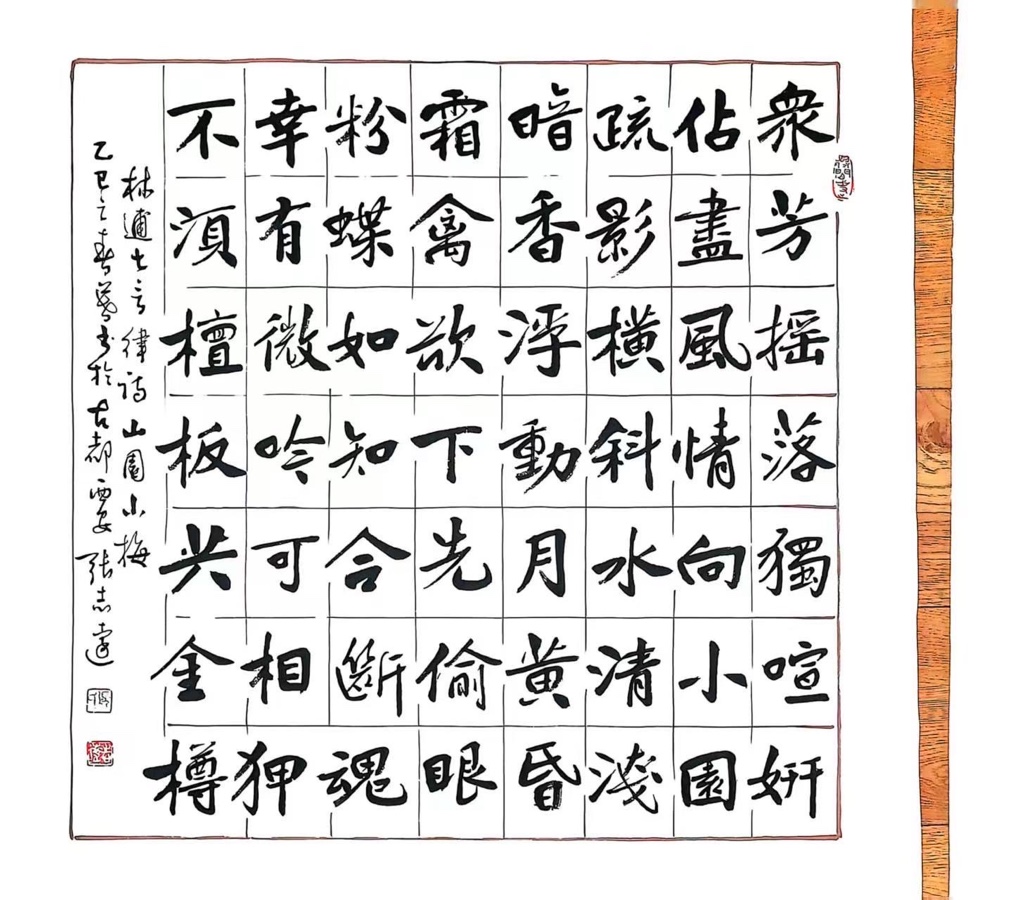 衆芳摇落獨喧妍
佔盡風情向小園
疏影橫斜水清淺
暗香浮動月黄昏
霜禽欲下先偷眼
粉蝶如知合斷魂
幸有微吟可相狎
不湏檀板共金樽
林逋七言律詩山園小梅
乙巳之春書於古都西安張志